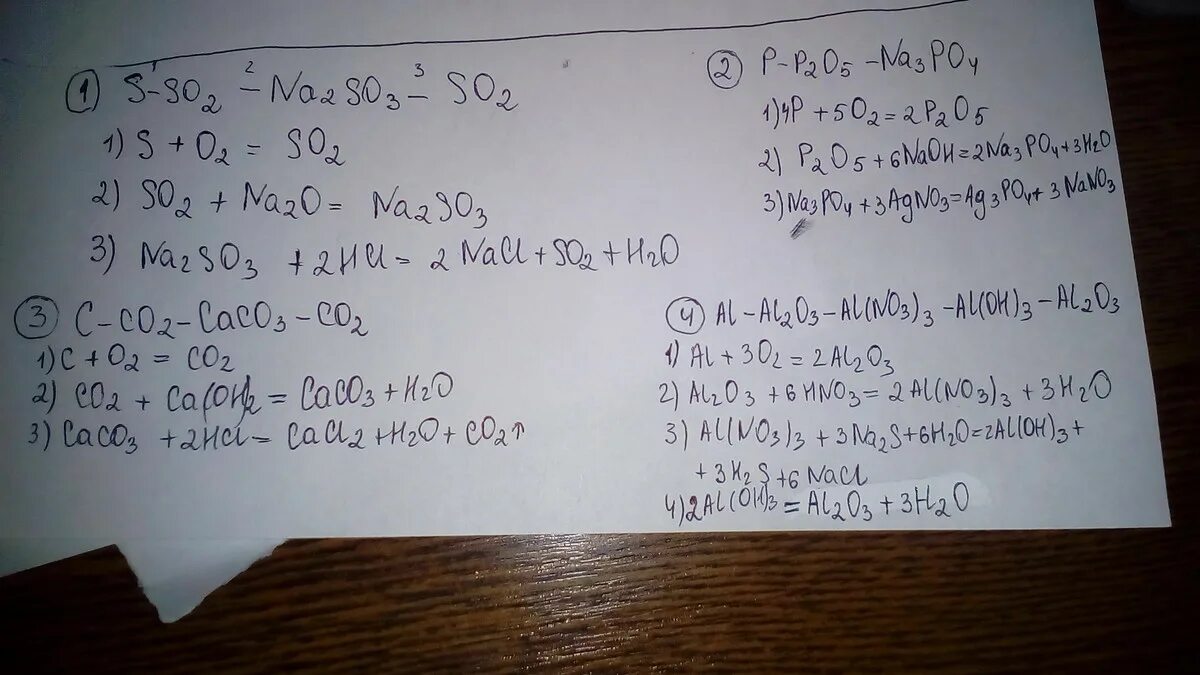 ① S-SO₂ - Na₂SO₃ - SO₂
1 2 3
1) S + O₂ = SO₂
2) SO₂ + Na₂O = Na₂SO₃
3) Na₂SO₃ + 2HCl = 2NaCl + SO₂ + H₂O
② P-P₂O₅-Na₃PO₄
1) 4P + 5O₂ = 2P₂O₅
2) P₂O₅ + 6NaOH = 2Na₃PO₄ + 3H₂O
3) Na₃PO₄ + 3AgNO₃ = Ag₃PO₄ + 3NaNO₃
③ C-CO₂-CaCO₃-CO₂
1) C + O₂ = CO₂
2) CO₂ + Ca(OH)₂ = CaCO₃ + H₂O
3) CaCO₃ + 2HCl = CaCl₂ + H₂O + CO₂↑
④ Al-Al₂O₃-Al(NO₃)₃-Al(OH)₃-Al₂O₃
1) Al + 3O₂ = 2Al₂O₃
2) Al₂O₃ + 6HNO₃ = 2Al(NO₃)₃ + 3H₂O
3) Al(NO₃)₃ + 3Na₂S + 6H₂O = 2Al(OH)₃ +
+ 3H₂S + 6NaCl
4) 2Al(OH)₃ = Al₂O₃ + 3H₂O